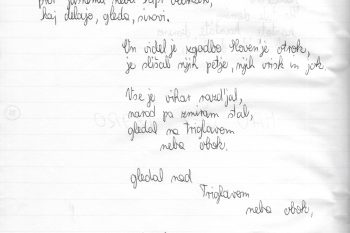 pod
neba
kaj delajo, gleda, sinovi.
On videl je zgodbo Sloven'je otrok,
je slišal njih petje, njih vrisk in jok.
Vse je vihar razd'jal,
narod pa zmiram stal,
gledal na Triglavom
neba obok.
gledal nad
Triglavom
neba obok,